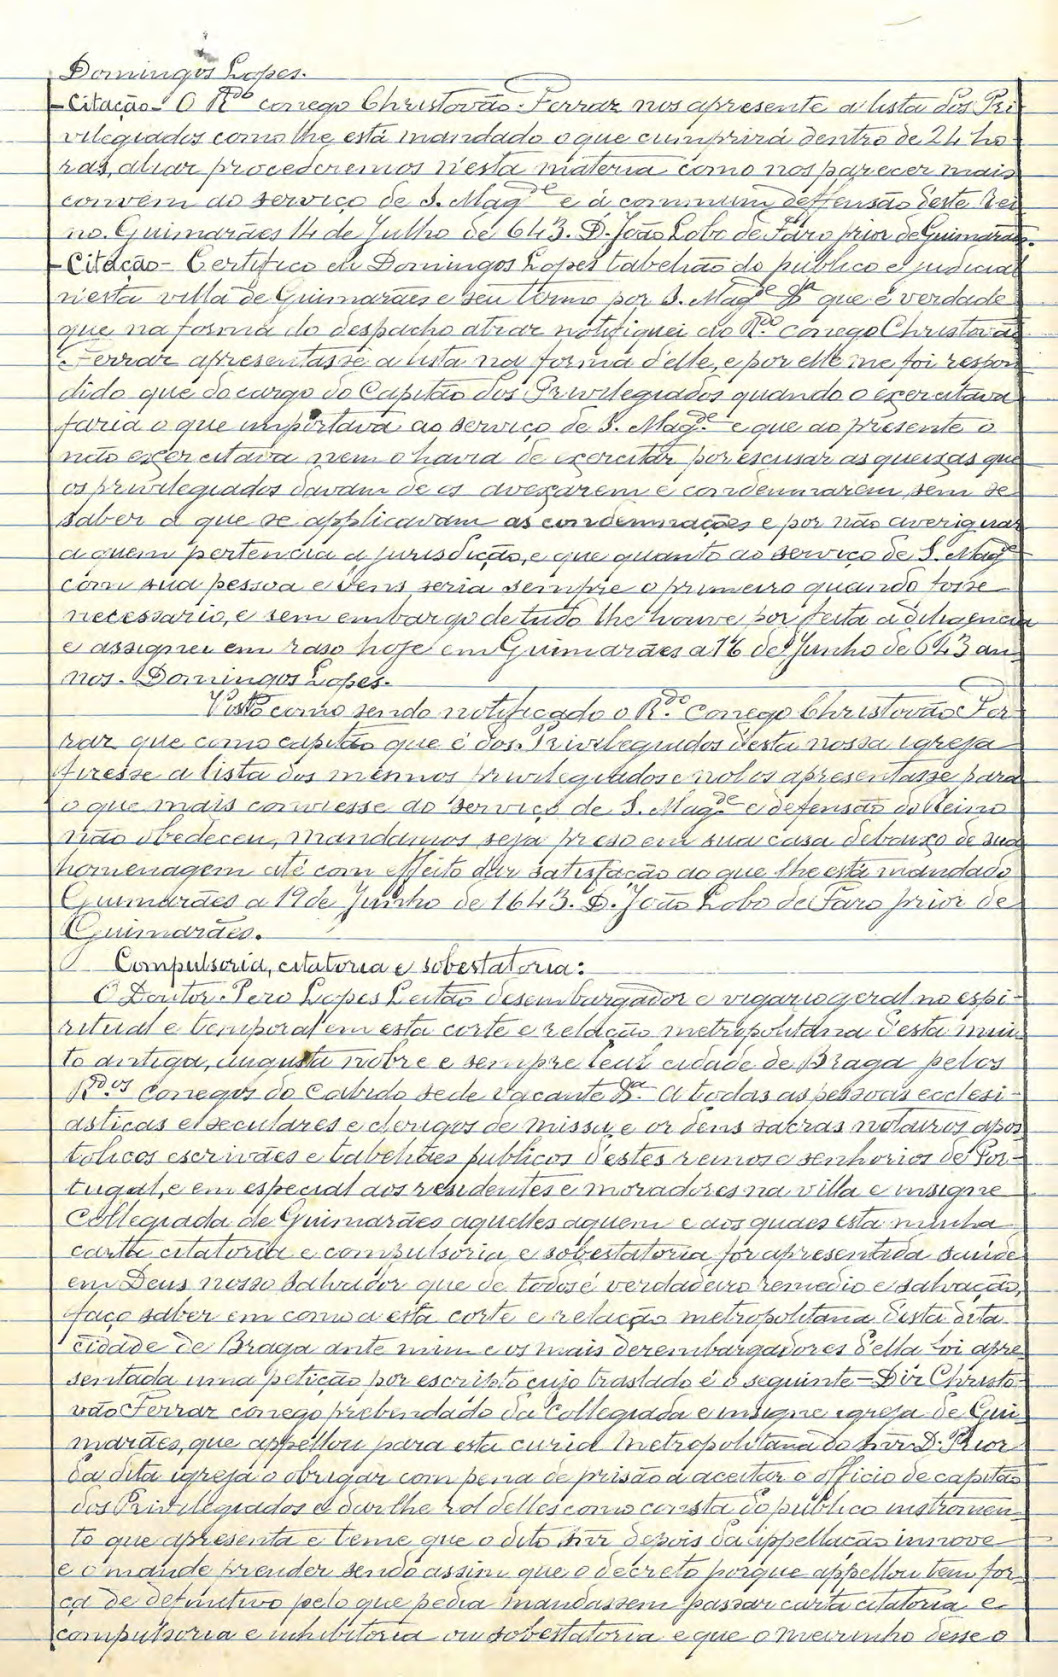 Domingos Lopes.
-Citação- O R.do conego Christovão Ferraz nos apresente a lista dos Pri-
vilegiados como lhe está mandado o que cumprirá dentro de 24 ho-
ras, aliaz procederemos n'esta materia como nos parecer mais
convem ao serviço de S. Mag.de e á commum deffensão d'este Rei-
no. Guimarães 14 de Julho de 643. D. João Lobo de Faro prior de Guimarães.
-Citação- Certifico eu Domingos Lopes tabelião do publico e judicial
n'esta villa de Guimarães e seu termo por S. Mag.de &.a que é verdade
que na forma do despacho atraz notifiquei ao R.do conego Christovão
Ferraz apresentasse a lista na forma d'elle, e por elle me foi respon-
dido que do cargo do Capitão dos Privilegiados quando o exercitava
faria o que importava ao serviço de S. Mag.de e que ao presente o
não exercitava nem o havia de exercitar por escusar as queixas que
os privilegiados davam de os avexarem e condemnarem, sem se
saber a que se applicavam as condemnações e por não averiguar
a quem pertencia a jurisdição, e que quanto ao serviço de S. Mag.de
com sua pessoa e bens, seria sempre o primeiro quando fosse
necessario, e sem embargo de tudo lhe houve por feita a diligencia
e assignei em raso hoje em Guimarães a 16 de Junho de 643 an-
nos. Domingos Lopes.
Visto como sendo notificado o R.do conego Christovão Fer-
raz que como capitão que é dos Privilegiados d'esta nossa igreja
fizesse a lista dos mesmos privilegiados e nol os apresentasse para
o que mais conviesse ao serviço de S. Mag.de e defensão do Reino
não obedeceu, mandamos seja preso em sua casa debaixo de sua
homenagem até com effeito dar satisfação ao que lhe está mandado
Guimarães a 19 de Junho de 1643. D. João Lobo de Faro prior de
Guimarães.
Compulsoria, citatoria e sobestatoria:
O Doutor Pero Lopes Leitão desembargador e vigario geral no espi-
ritual e temporal em esta corte e relação metropolitana d'esta mui-
to antiga, augusta nobre e sempre leal cidade de Braga pelos
R.dos Conegos do Cabido sede vacante &.a A todas as pessoas ecclesi-
asticas e seculares e clerigos de missa, e ordens sacras notarios apos-
tolicos escrivães e tabeliães publicos d'estes reinos e senhorios de Por-
tugal, e em especial aos residentes e moradores na villa e insigne
Collegiada de Guimarães aquelles aquem e aos quaes esta minha
carta citatoria e compulsoria e sobestatoria for apresentada saúde
em Deus nosso Salvador que de todos é verdadeiro remedio e salvação,
faço saber em como a esta corte e relação metropolitana d'esta dita
cidade de Braga ante mim e os mais desembargadores d'ella foi apre-
sentada uma petição por escripto cujo traslado é o seguinte - Diz Christo-
vão Ferraz conego prebendado da Collegiada e insigne igreja de Gui-
marães, que appellou para esta curia Metropolitana do snr D. Prior
da dita igreja o obrigar com pena de prisão a aceitar o officio de capitão
dos Privilegiados e dar lhe rol delles como consta do publico instromen-
to que apresenta e teme que o dito snr depois da appellação innove
e o mande prender sendo assim que o decreto porque appellou tem for-
ça de definitivo pelo que pedia mandassem passar carta citatoria e
compulsoria e inhibitoria ou sobestatoria e que o meirinho desse o